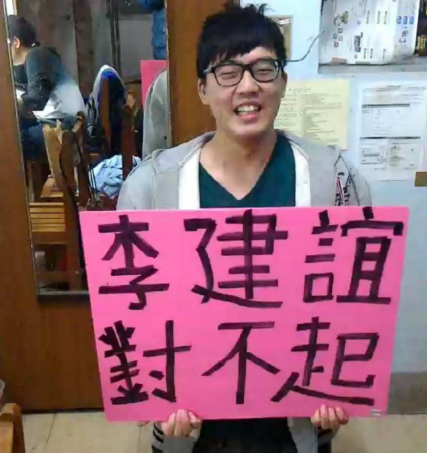 李建誼
對不起